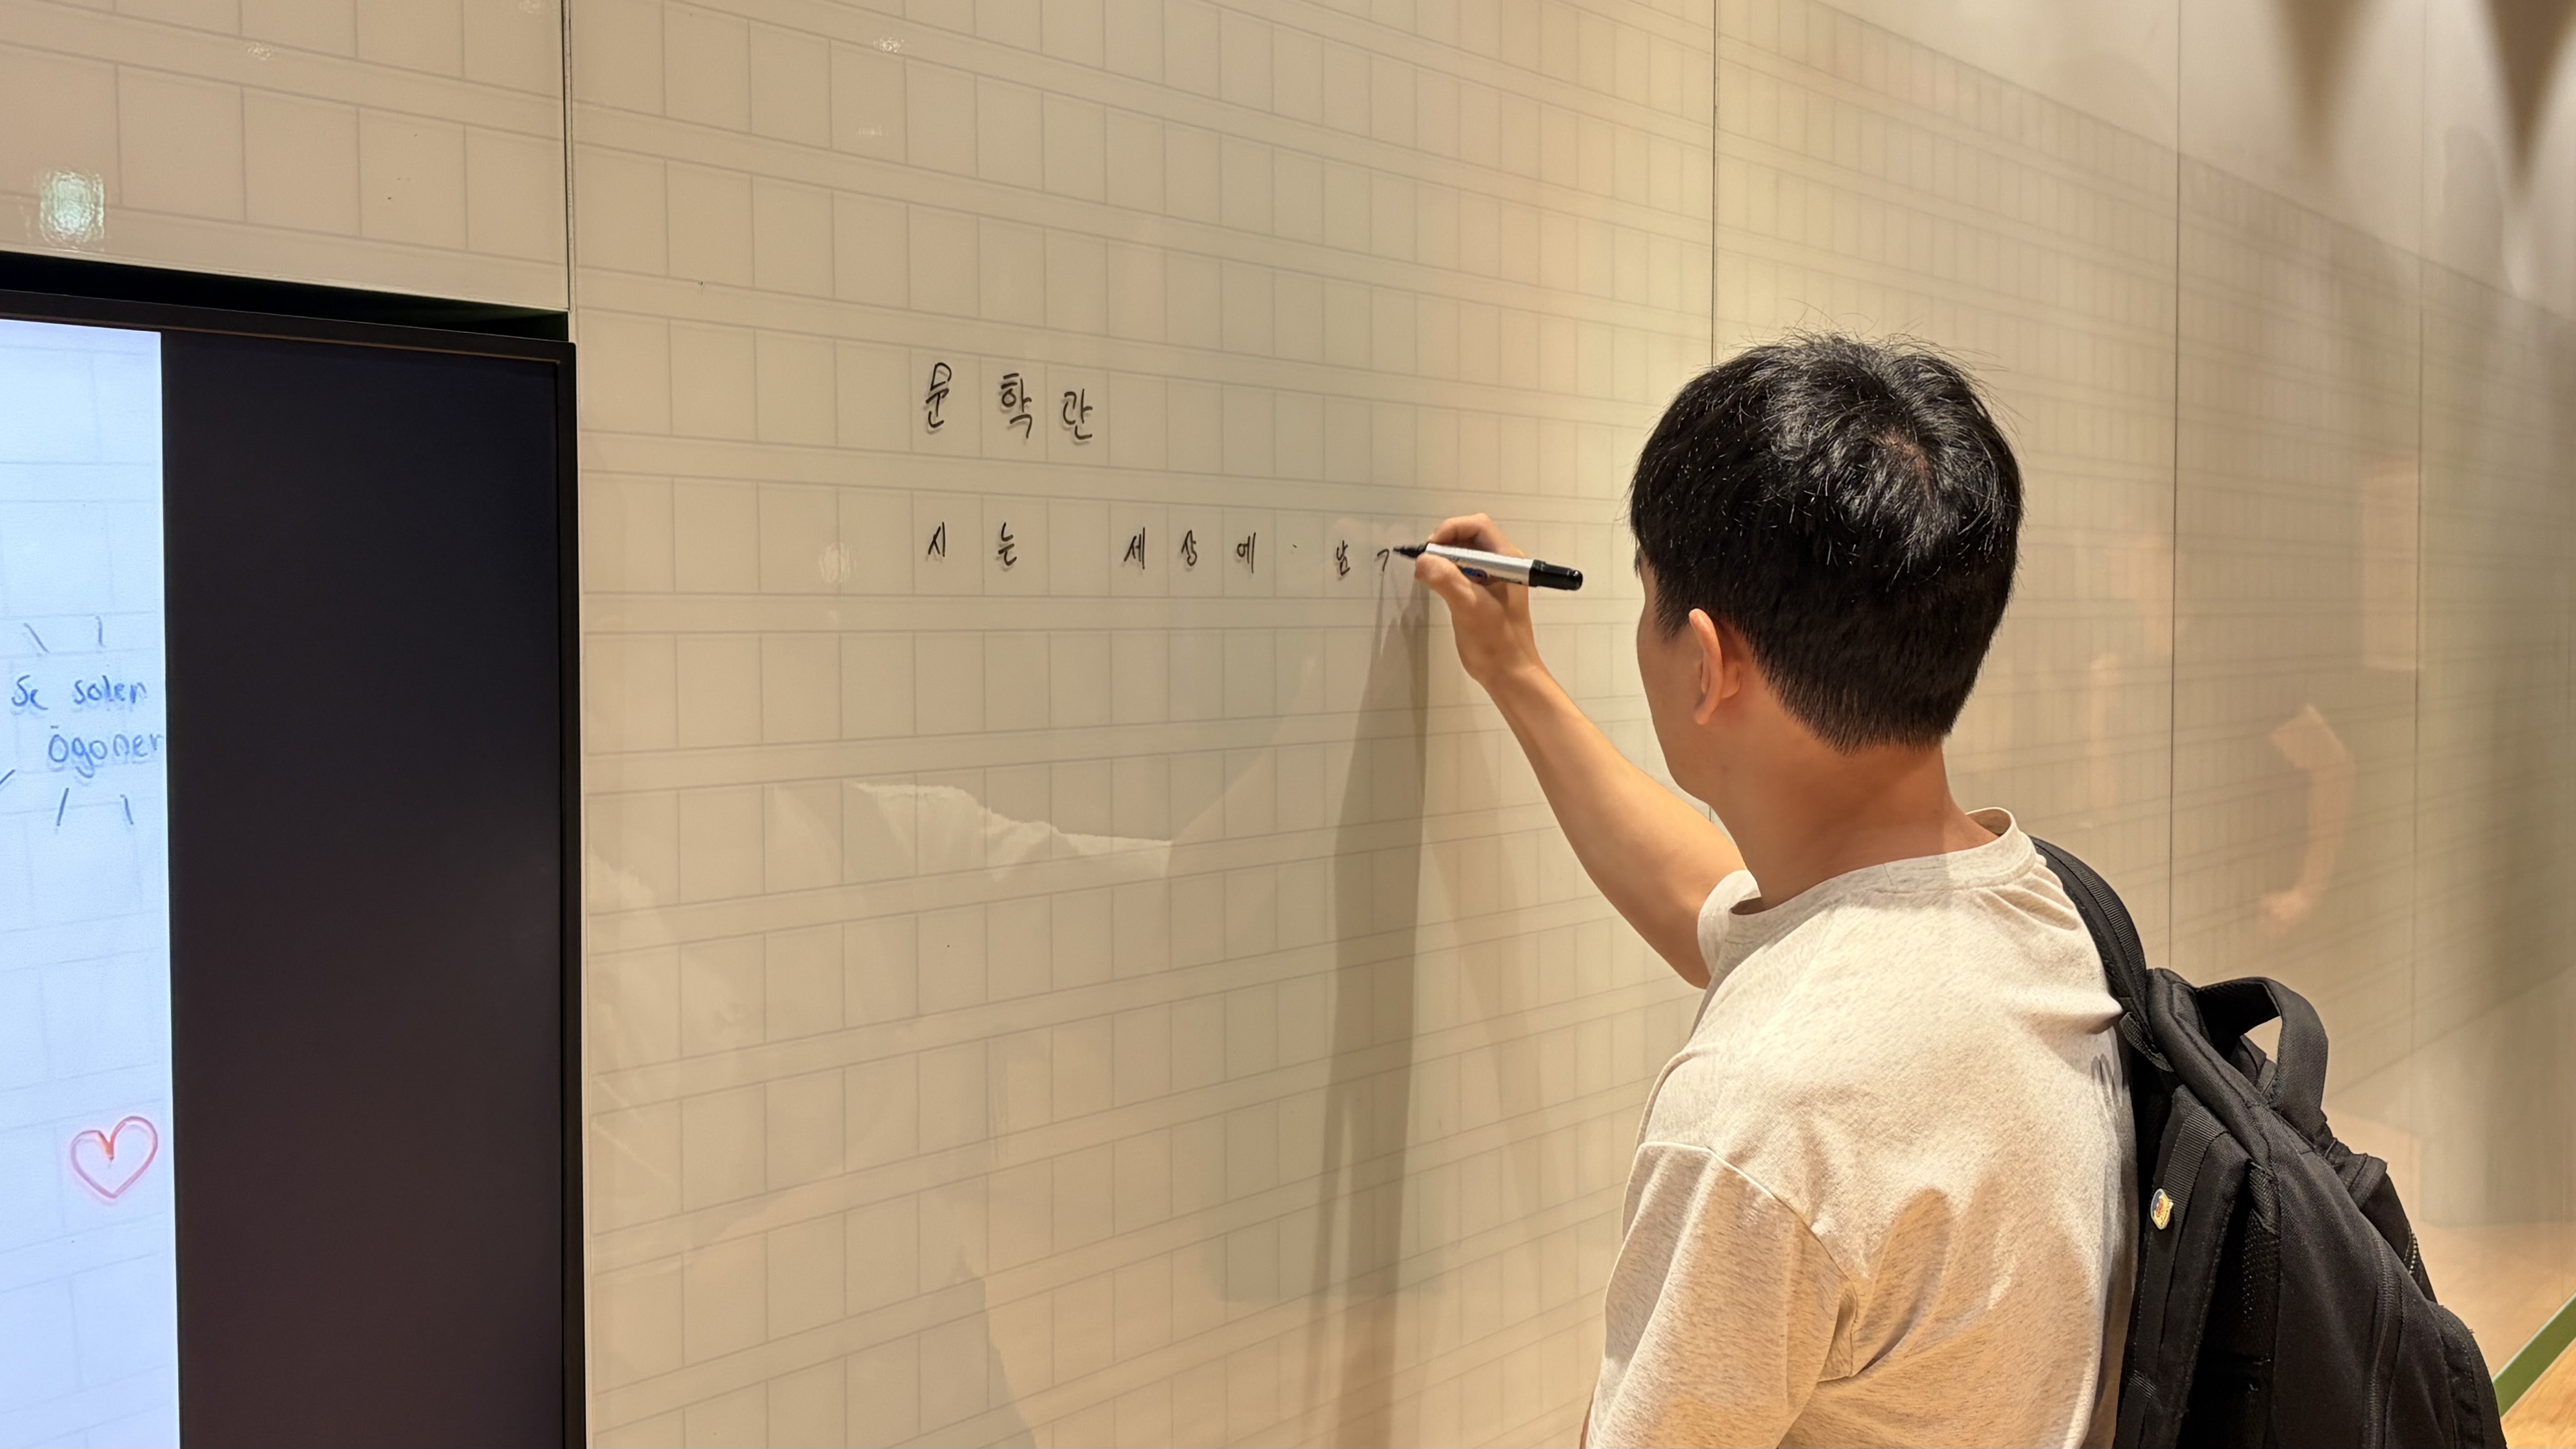 문학관
시는 세상에 남
Se solen
ögoner